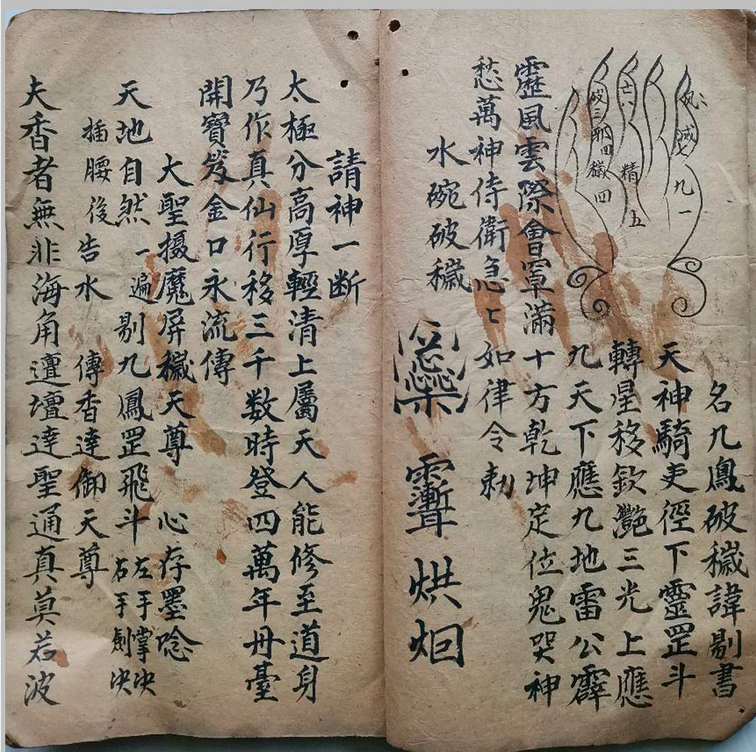 名九鳳破穢諱剔書
天神騎吏徑下靈罡斗
轉星移欽艷三光上應
九天下應九地雷公霹
靂風雲際會罩滿十方乾坤定位鬼哭神
愁萬神侍衛急〻如律令勅
水碗破穢
烘烟
九一
精五
破三邪四穢四
請神一断
太極分高厚輕清上屬天人能修至道身
乃作真仙行移三千数時登四萬年丹臺
開寶笈金口永流傳
大聖摄魔屏穢天尊 心存墨唸
天地自然一遍剔九鳳罡飛斗 左手掌决 右手劍决
插腰後告水 傳香達御天尊
夫香者無非海角邅壇達聖通真莫若波